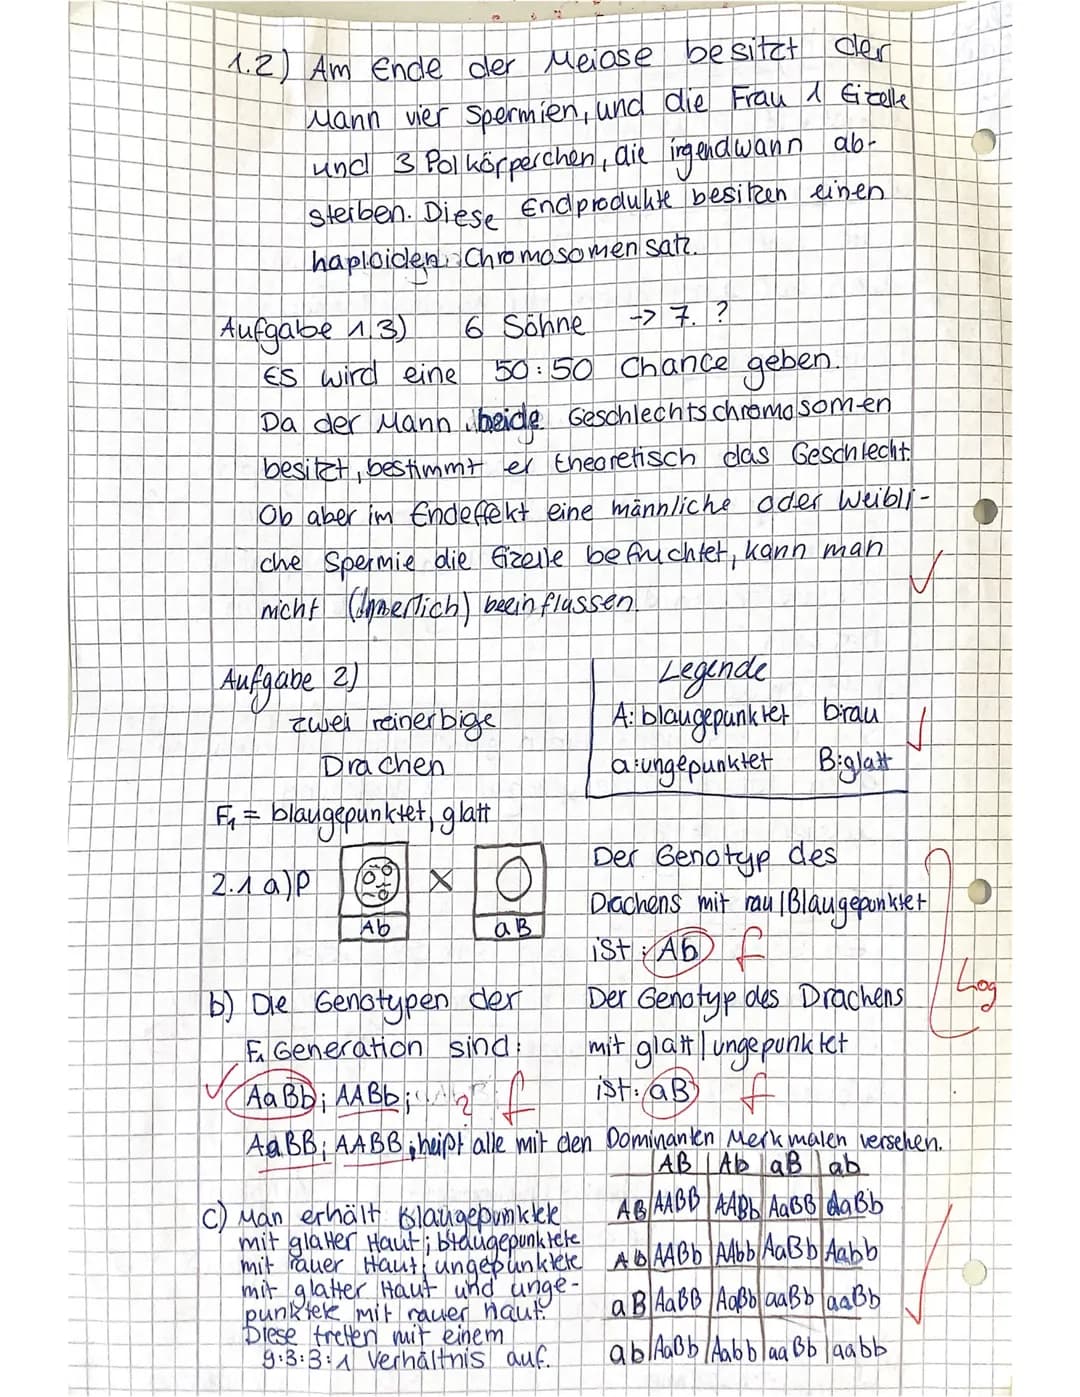 1.2) Am Ende der Meiose besitzt der
Mann vier Spermien, und die Frau 1 Eizelle
und 3 Polkörperchen, die irgendwann ab-
sterben. Diese Endprodukte besitzen einen
haploiden Chromosomensatz.
Aufgabe 1.3) 6 Söhne -> 7. ?
Es wird eine 50:50 Chance geben.
Da der Mann beide Geschlechtschromosomen
besitzt, bestimmt er theoretisch das Geschlecht.
Ob aber im Endeffekt eine männliche oder weibli-
che Spermie die Eizelle befruchtet, kann man
nicht beeinflussen.
Aufgabe 2)
zwei reinerbige
Drachen
Legende
A: blaugepunktet b:rau
a:ungepunktet B:glatt
F1 = blaugepunktet, glatt
2.1 a) P
X
Ab
aB
Der Genotyp des
Drachens mit rau/Blaugepunktet
ist: Ab f
Der Genotyp des Drachens
mit glatt/ungepunktet
ist: aB f
Log
b) Die Genotypen der
F1 Generation sind:
AaBb; AABb; ? f
AaBB; AABB; heißt alle mit den Dominanten Merkmalen versehen.
c) Man erhält Blaugepunktete
mit glatter Haut; blaugepunktete
mit rauer Haut; ungepunktete
mit glatter Haut und unge-
punktete mit rauer Haut.
Diese treten mit einem
9:3:3:1 Verhältnis auf.
AB Ab aB ab
AB AABB AABb AaBB AaBb
Ab AABb AAbb AaBb Aabb
aB AaBB AaBb aaBb aaBb
ab AaBb Aabb aaBb aabb